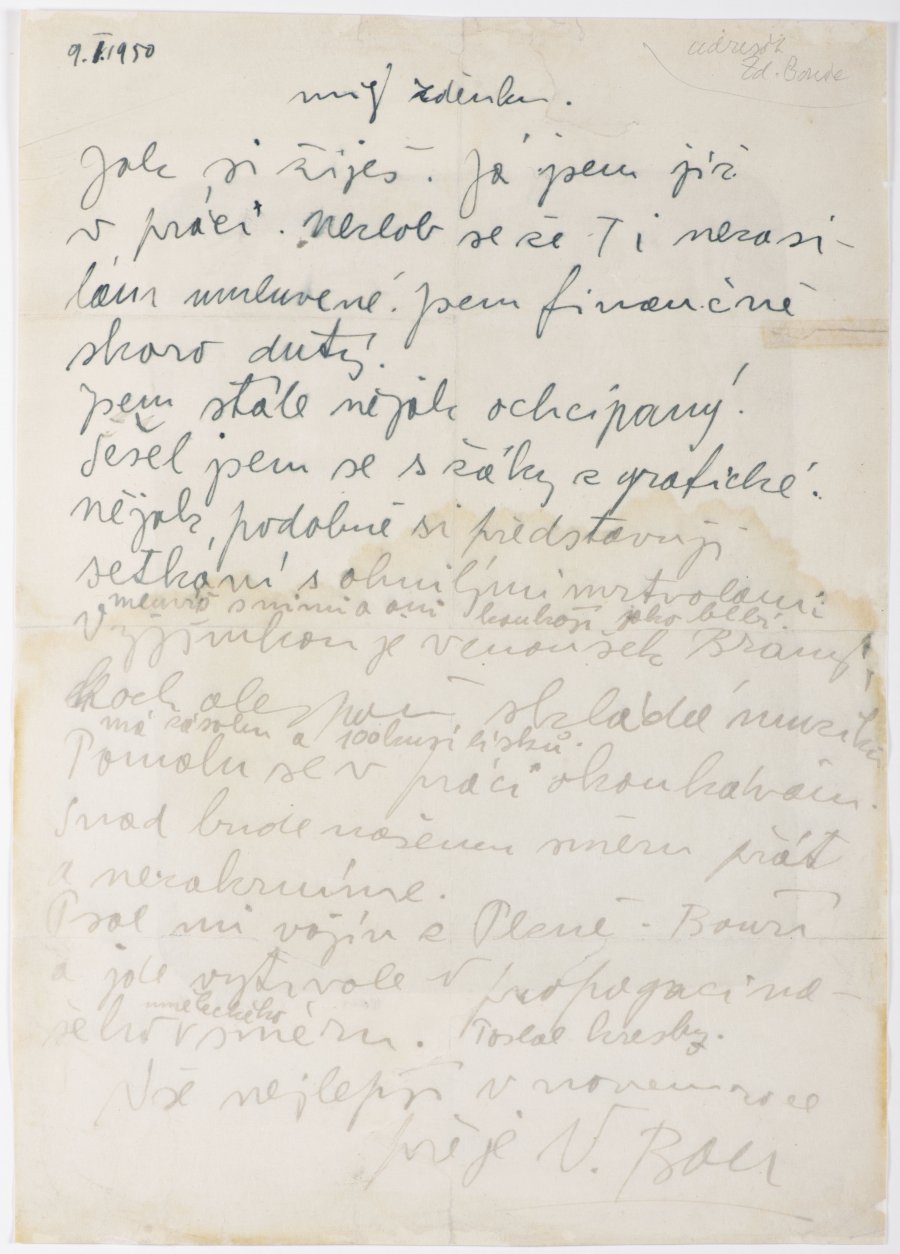 9.I.1950
adresát
Zd. Bouše
milý Zdeňku.
Jak si žiješ. Já jsem již
v práci. Nezlob se že Ti nezasí-
lám umluvené. Jsem finančně
skoro dutý.
Jsem stále nějak ochcípaný.
Sešel jsem se s žáky z grafické.
Nějak podobně si představuji
setkání s ohnilými mrtvolami
mluvíš s nimi a oni koukají jako blbí.
Vyjímkou je venoušek
ale skládá muziku
má zásobu a 100 kusů lístků.
Pomalu se v práci okoukávám.
Snad bude našemu směru přát
a nezakrníme.
Psal mi vojín z Plzně - Bouří
a jde vytrvale v propagaci na-
uměleckého
šeho směru. Poslal kresby.
Vše nejlepší v novém roce
přeje V. Bou